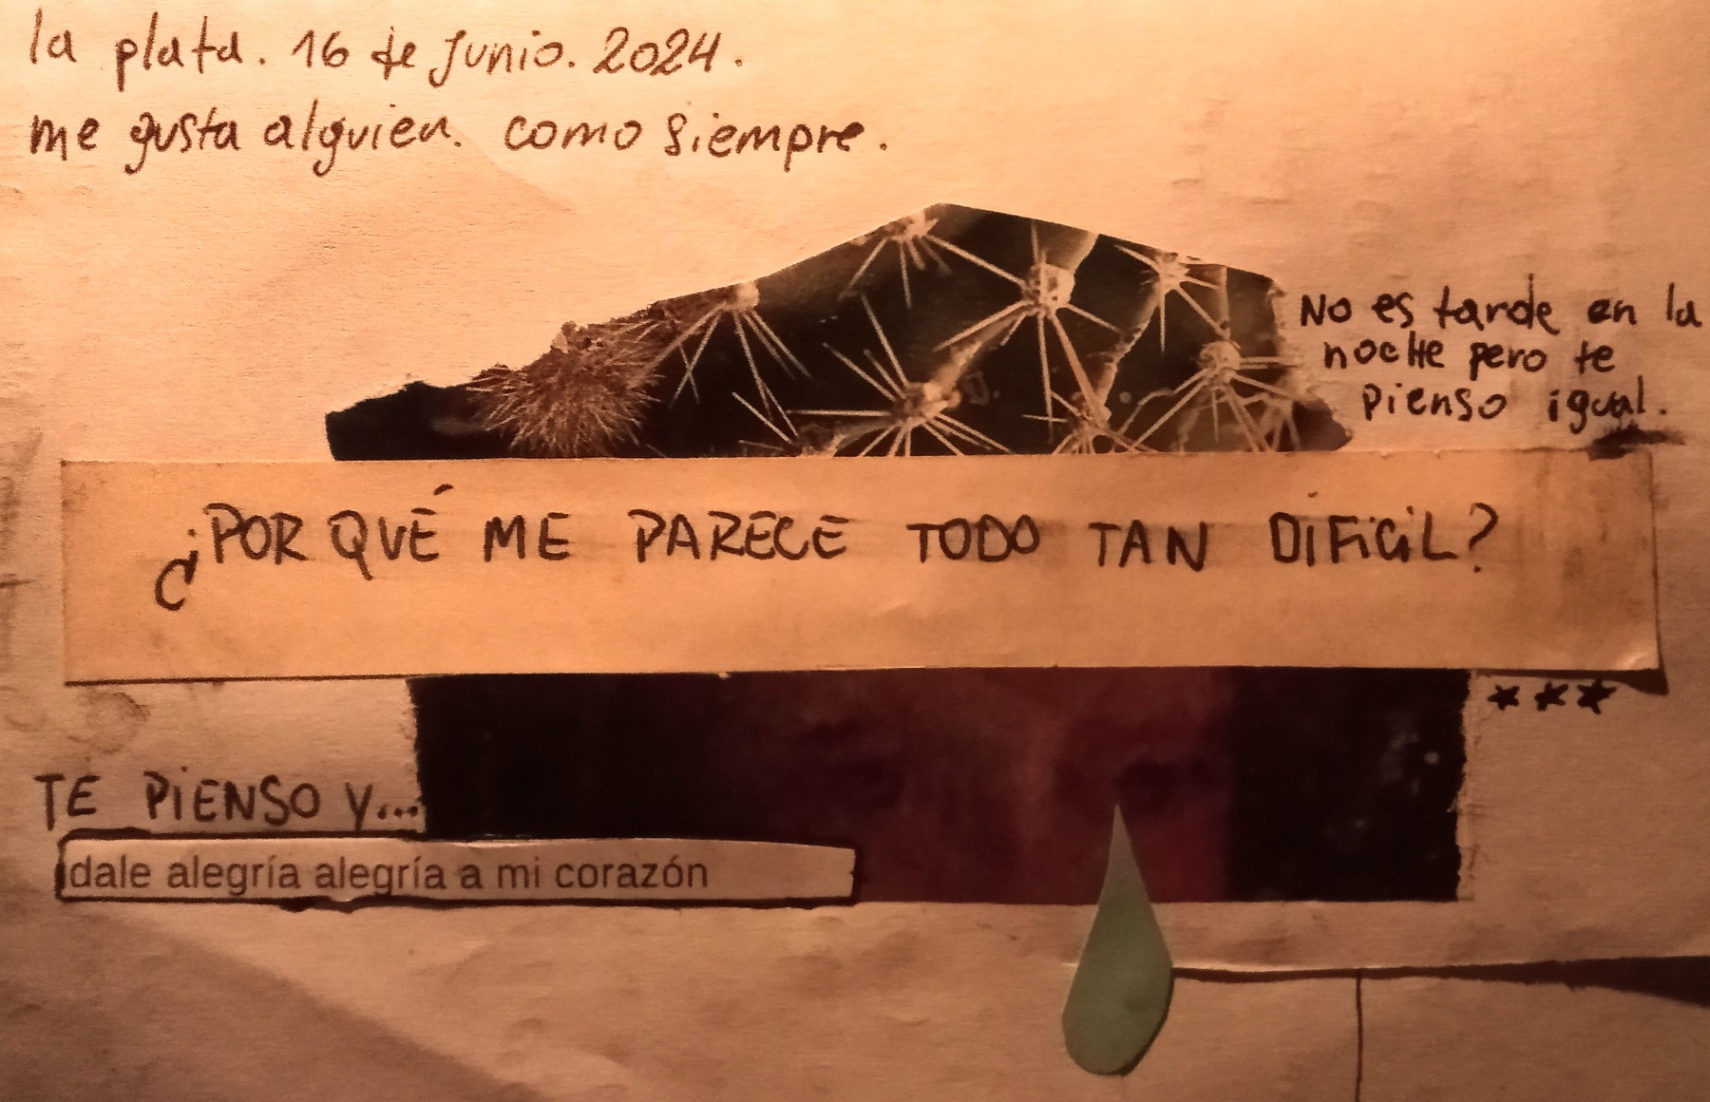 la plata. 16 de junio. 2024.
me gusta alguien. como siempre.
No es tarde en la
noche pero te
pienso igual.
¿POR QUÉ ME PARECE TODO TAN DIFíCiL?
***
TE PiENSO Y...
dale alegría alegría a mi corazón